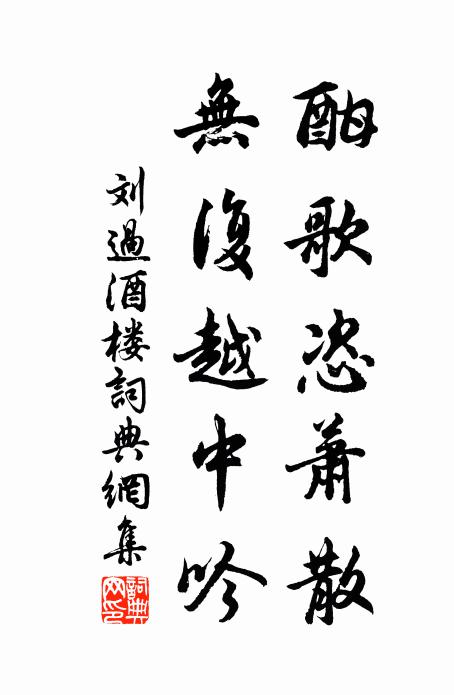 酣歌恣蕭散
無復越中吟
刘過酒楼詞典網集
詞典網印